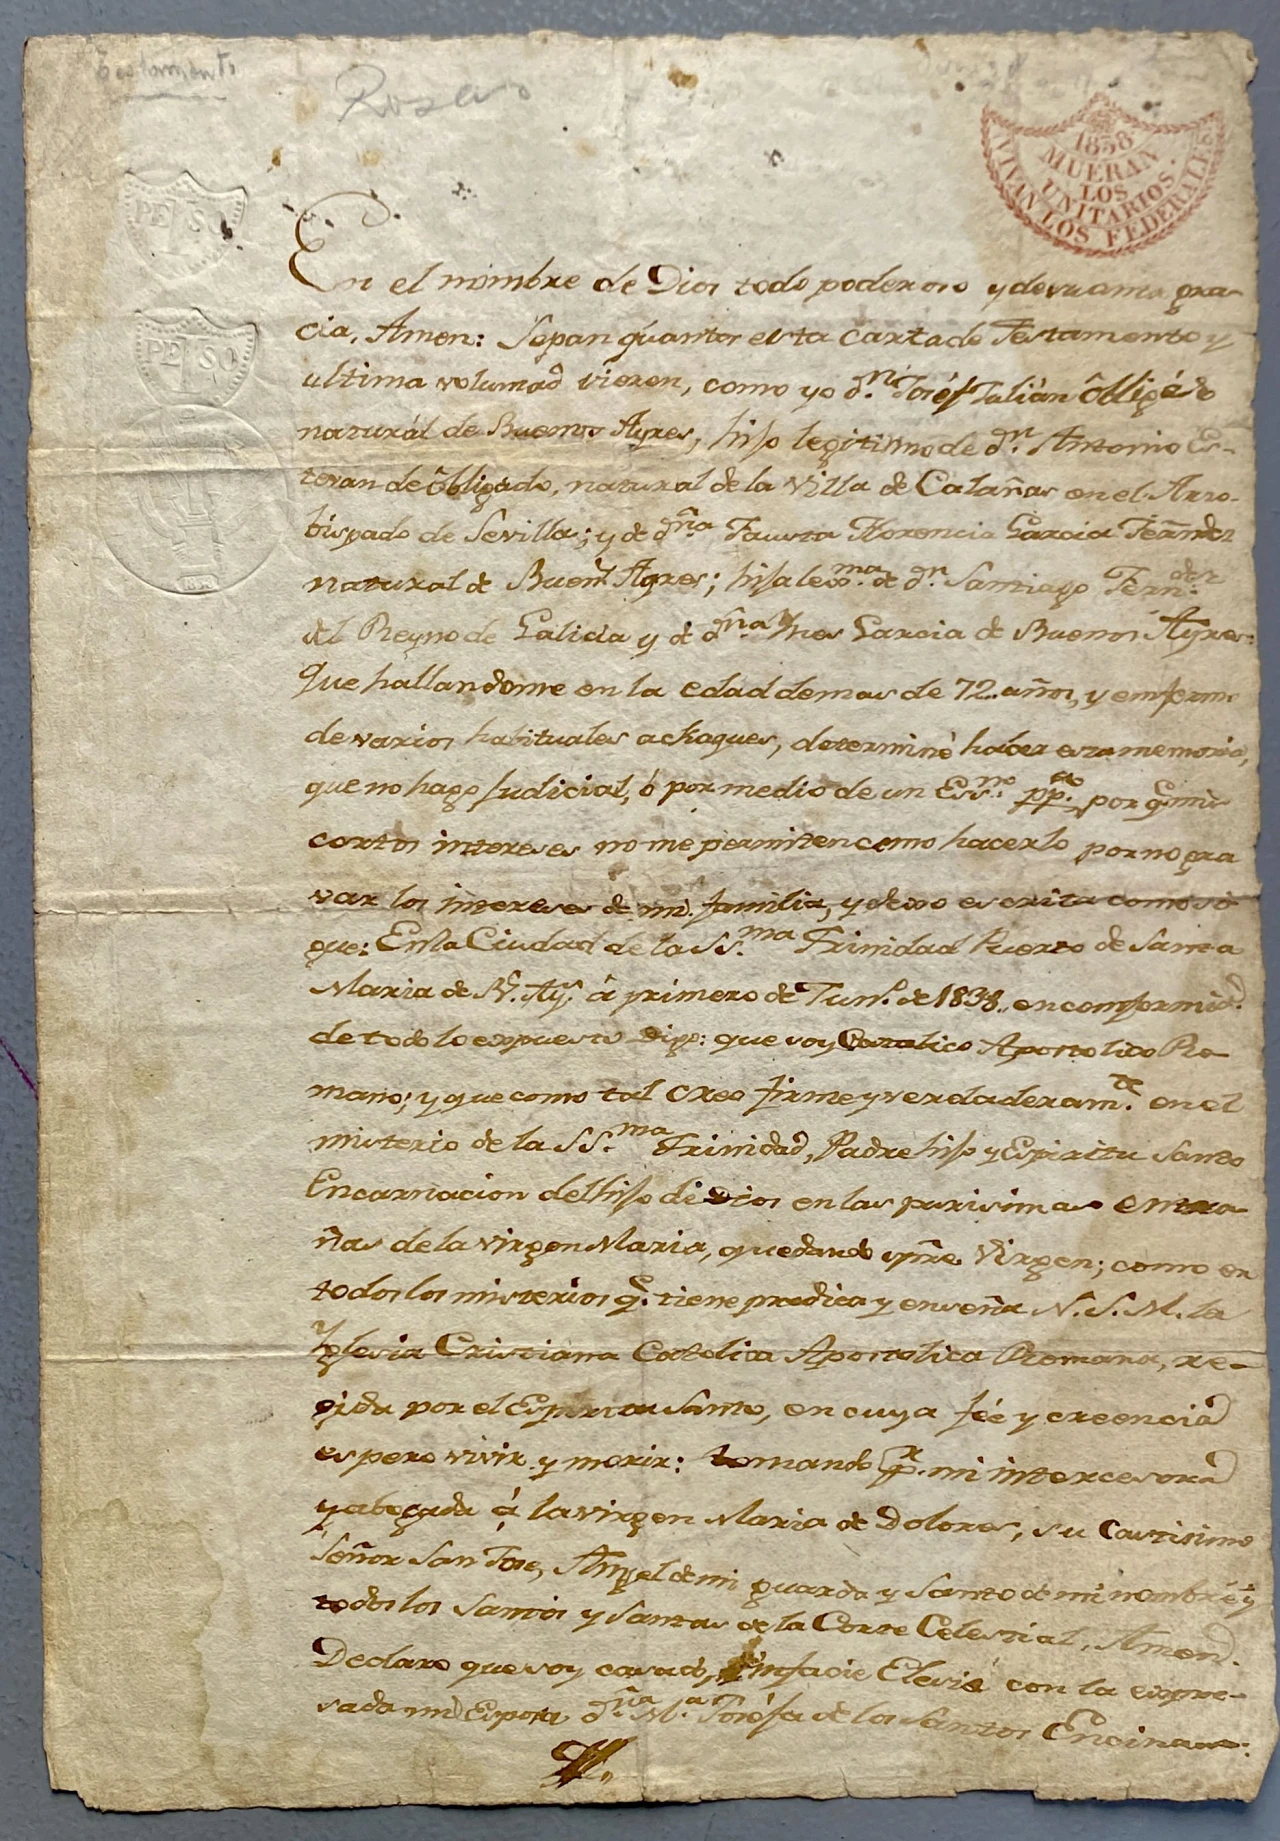 Testamento
Rosas
1838
MUERAN
LOS
UNITARIOS.
VIVAN LOS FEDERALES
PESO
PESO
1838
En el nombre de Dios todo poderoso y de su ama gra-
cia, Amen: Sepan quantos esta carta de Testamento y
ultima voluntad vieren, como yo dn. José Julián Obligádo
naturál de Buenos Ayres, hijo legitimo de dn. Antonio Es-
tevan de Obligado, natural de la Villa de Calañas en el Arzo-
bispado de Sevilla; y de dña Fausta Florencia Garcia Fernãdz
natural de Buens. Ayres; hija lexma. de dn. Santiago Ferndez.
del Reyno de Galicia y de dña Ines Garcia de Buenos Ayres:
Que hallandome en la edad de mas de 72. años, y enfermo
de varios habituales achaques, determiné haber esta memoria,
que no hago judicial, ó por medio de un Essno. ppco. por q. mis
cortos intereses no me permiten como hacerlo por no gra
var los intereses de mi familia, y dexo escrita como si
gue: En la Ciudad de la SS.ma Trinidad Puerto de Santa
Maria de Bs. Ays. á primero de Juno. de 1838., en conformid.
de todo lo expuesto Digo: que soy Catolico Apostolico Ro-
mano; y que como tal creo firme y verdaderamte. en el
misterio de la SS.ma Trinidad, Padre hijo y Espiritu Santo
Encarnacion del hijo de Dios en las purisimas entra-
ñas de la virgen Maria, quedando spre. Virgen; como en
todos los misterios q. tiene predica y enseña N. S. M. la
Yglesia Cristiana Catolica Apostolica Romana, re-
gida por el Espiritu Santo, en cuya feé y creencia
espero vivir y morir: tomando pr. mi intercesora
y abogada á la virgen Maria de Dolores, su castisimo
Señor San Jose, Angel de mi guarda y Santo de mi nombre, y
todos los Santos y Santas de la Corte Celestial, Amen.
Declaro que soy casado, infacie Elesié con la expre-
sada mi Esposa dña Ma. Joséfa de los Santos Encinas: